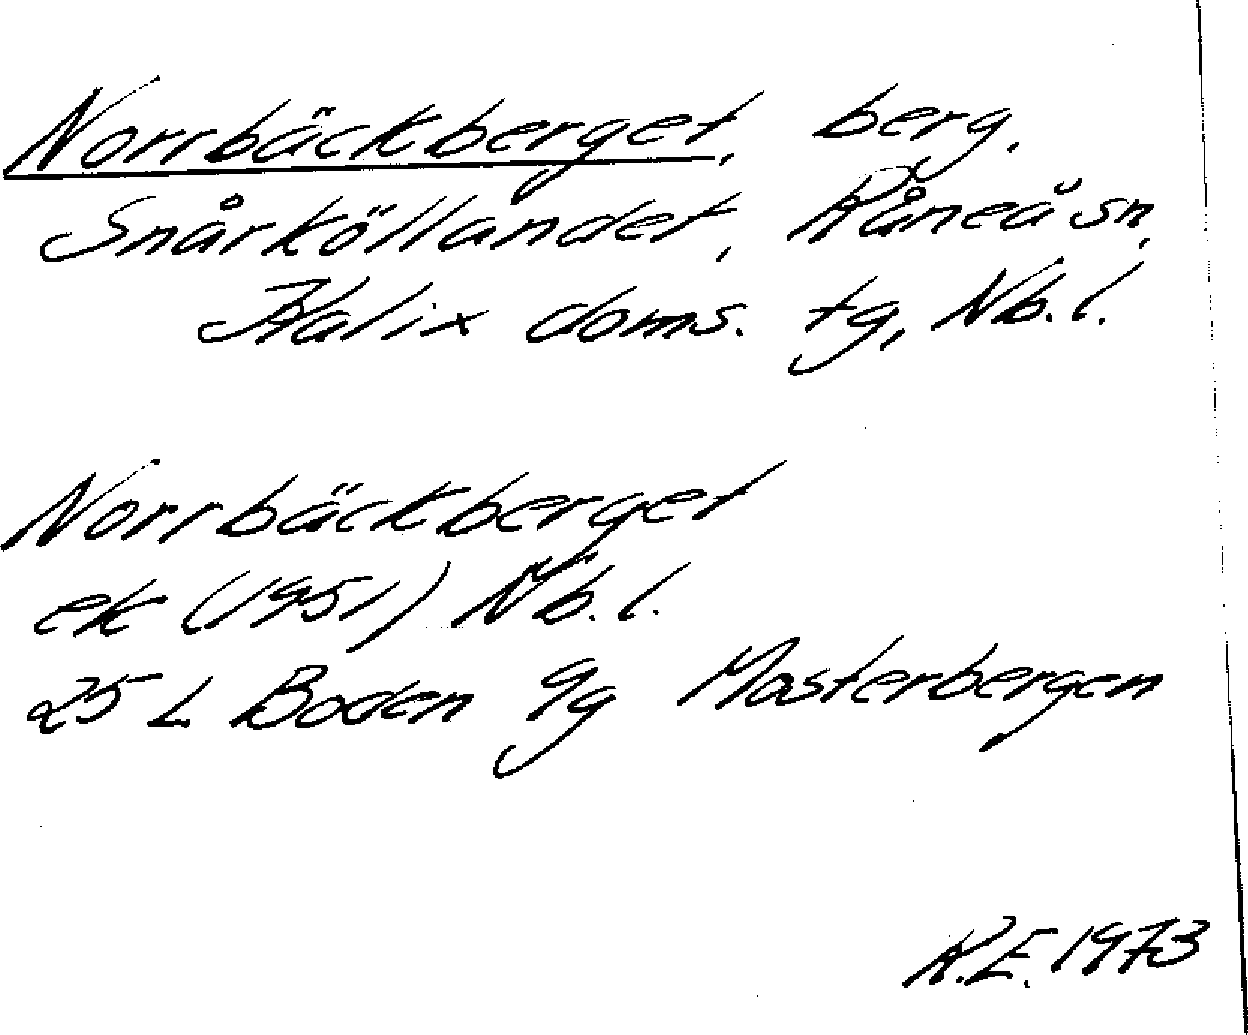 Norrbäckberget, berg,
Snårköllandet, Råneå sn,
Kalix doms. tg, Nb. l.
Norrbäckberget
ek (1951) Nb. l.
25 L Boden 9g Mosterbergen
R.E. 1973